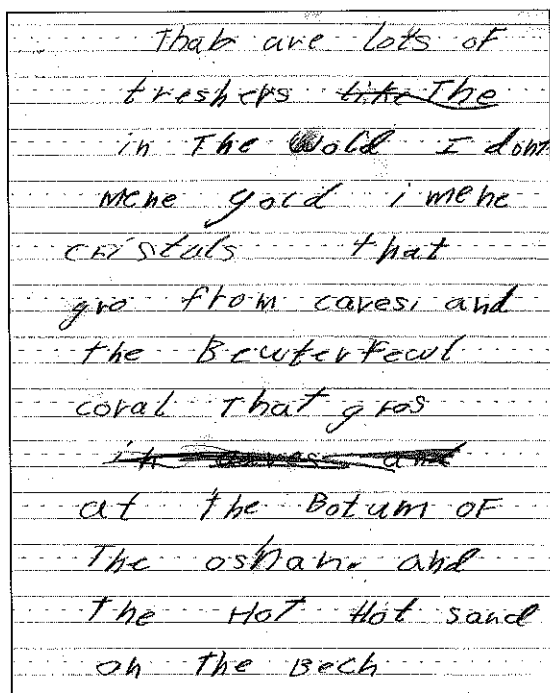 Thar are lots of
treshers like The
in The Wold I dont
mene gold i mene
cristals that
gro from caves, and
the Bewterfewl
coral That gros
in caves and
at the Botum OF
The oshan. and
The HOT Hot sand
on The Bech